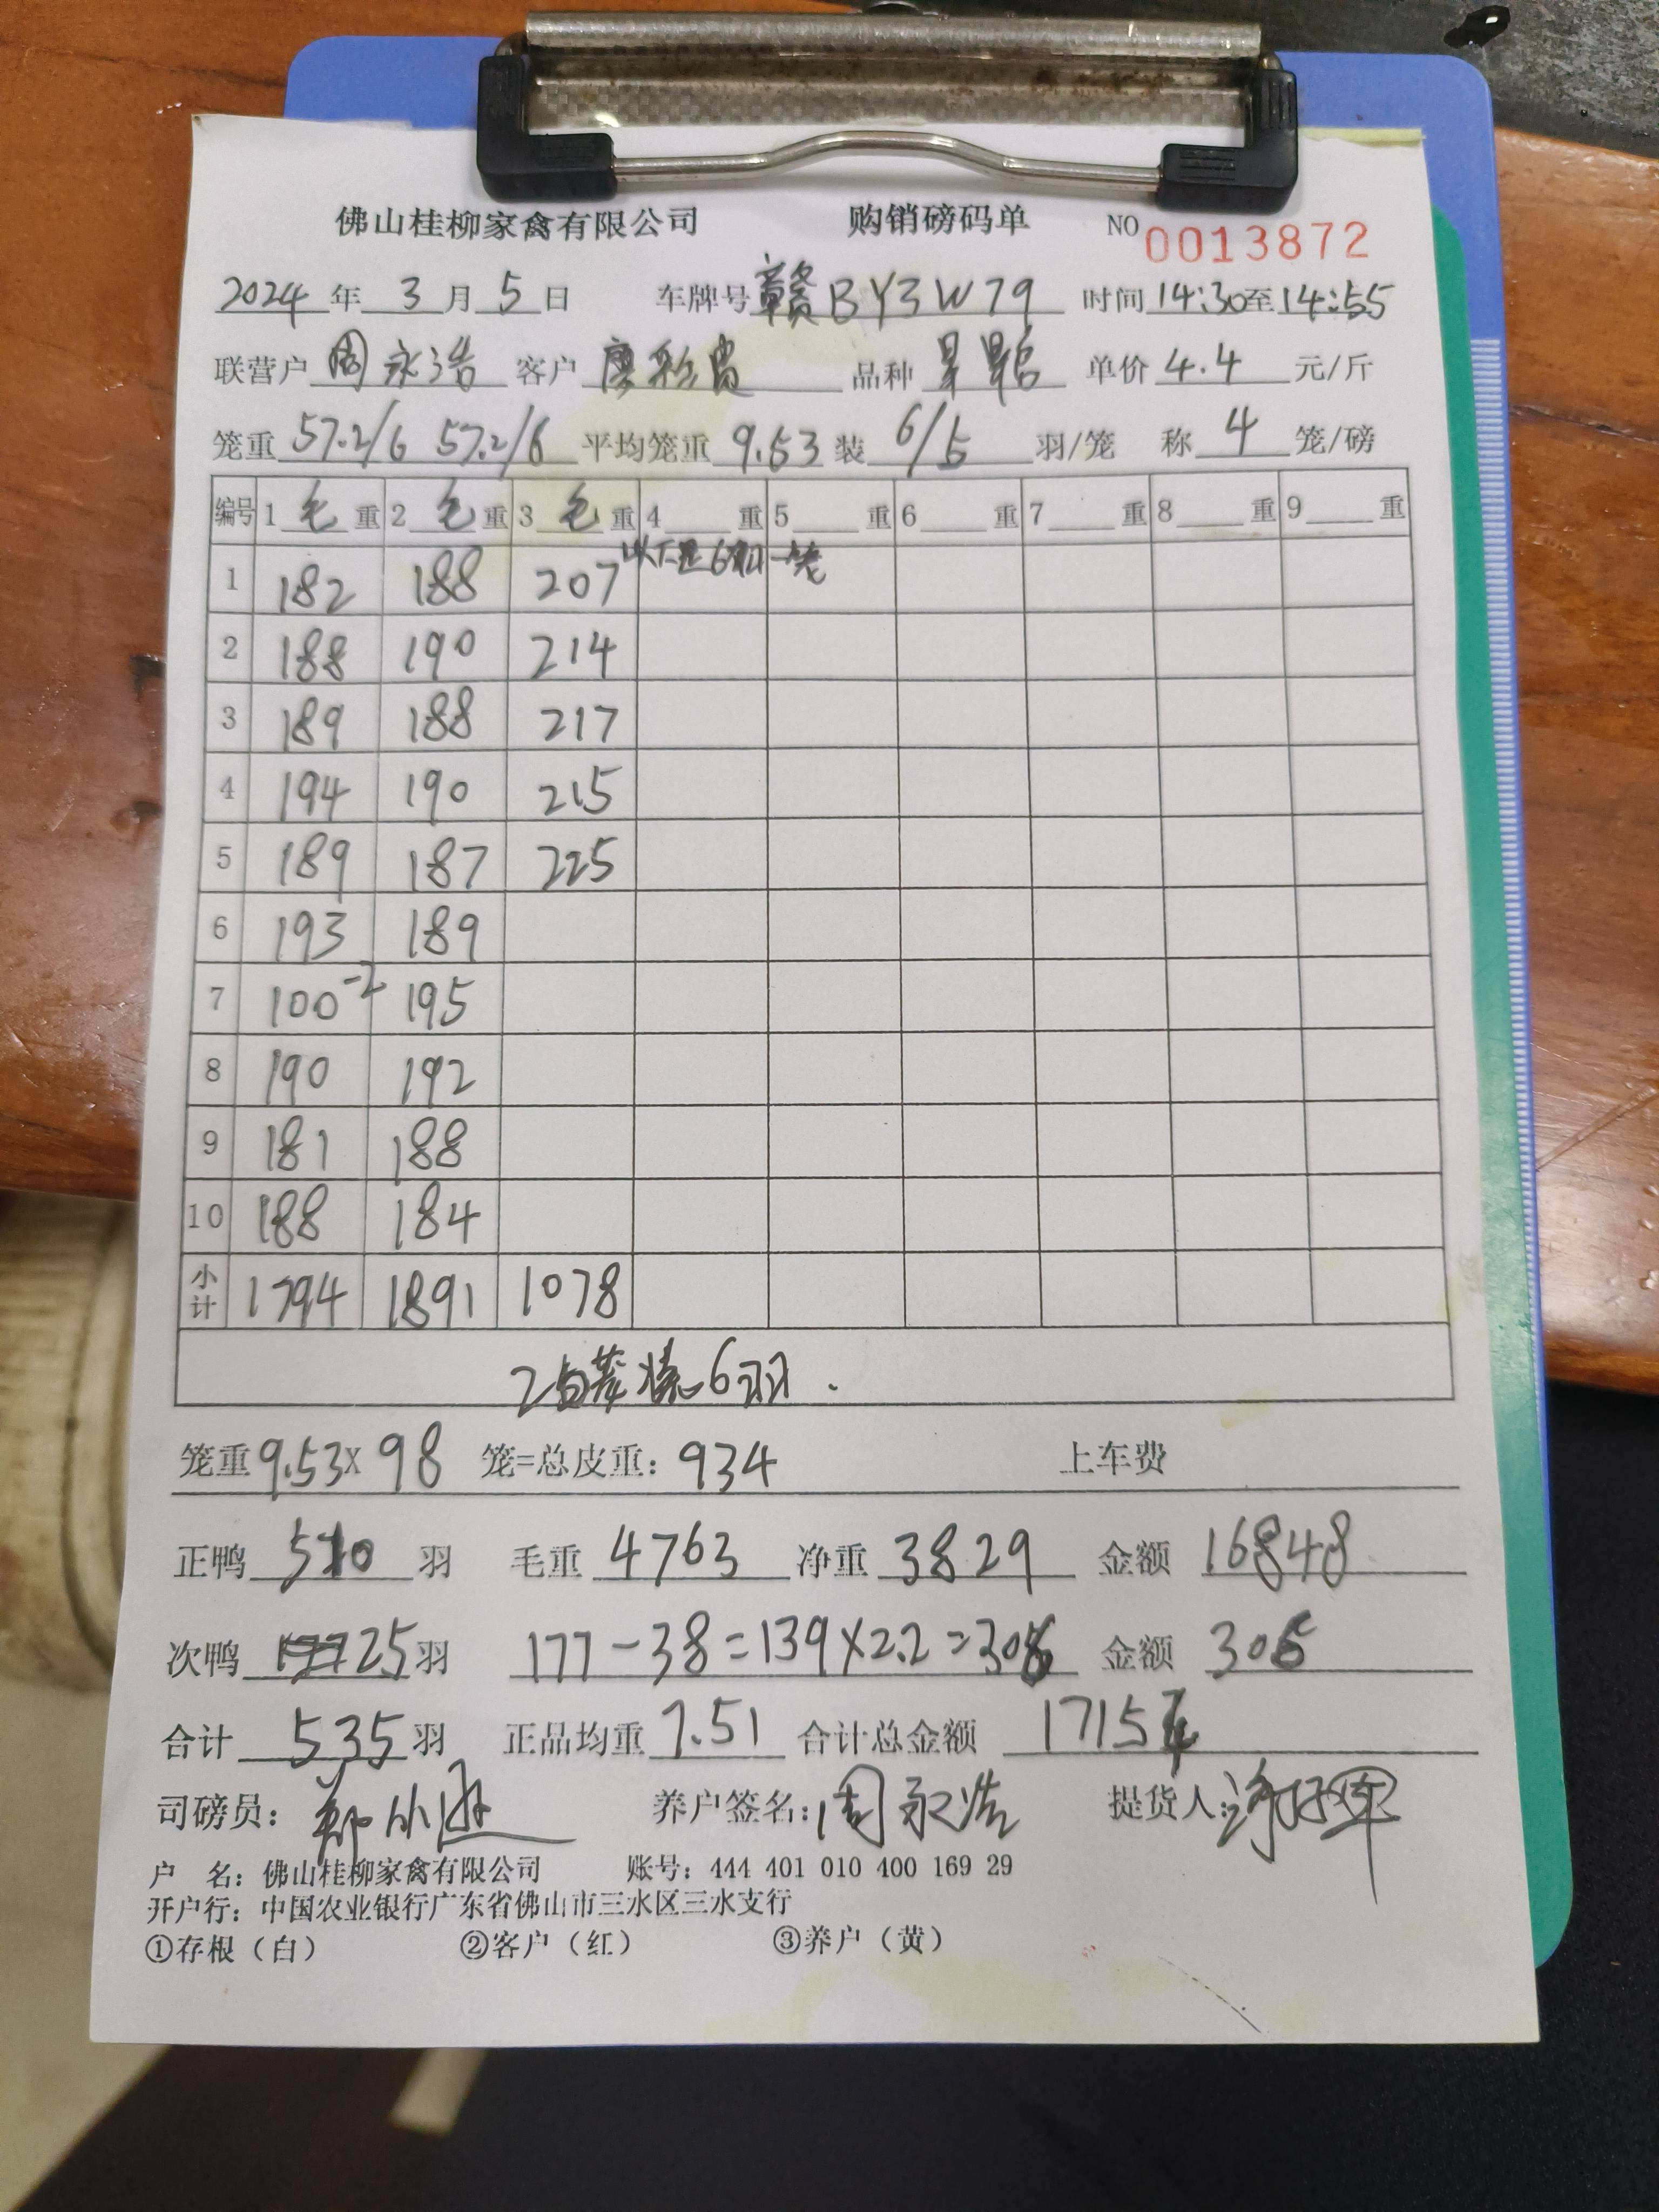 佛山桂柳家禽有限公司 购销磅码单 NO 0013872
2024 年 3 月 5 日 车牌号 赣BY3W79 时间 14:30至14:55
联营户 周永浩 客户 廖 品种 单价 4.4 元/斤
笼重 57.2/6 57.2/6 平均笼重 9.53 装 6/5 羽/笼 称 4 笼/磅
编号 1 毛 重 2 毛 重 3 毛 重 4 重 5 重 6 重 7 重 8 重 9 重
以下是6羽一笼
1 182 188 207
2 188 190 214
3 189 188 217
4 194 190 215
5 189 187 225
6 193 189
7 100-2 195
8 190 192
9 181 188
10 188 184
小计 1794 1891 1078
2 装6羽.
笼重 9.53X 98 笼=总皮重: 934 上车费
正鸭 510 羽 毛重 4763 净重 3829 金额 16848
次鸭 25 羽 177-38=139×2.2=306 金额 306
合计 535 羽 正品均重 7.51 合计总金额 1715
司磅员: 郑 养户签名: 周永浩 提货人:
户 名: 佛山桂柳家禽有限公司 账号: 444 401 010 400 169 29
开户行: 中国农业银行广东省佛山市三水区三水支行
①存根(白) ②客户(红) ③养户(黄)